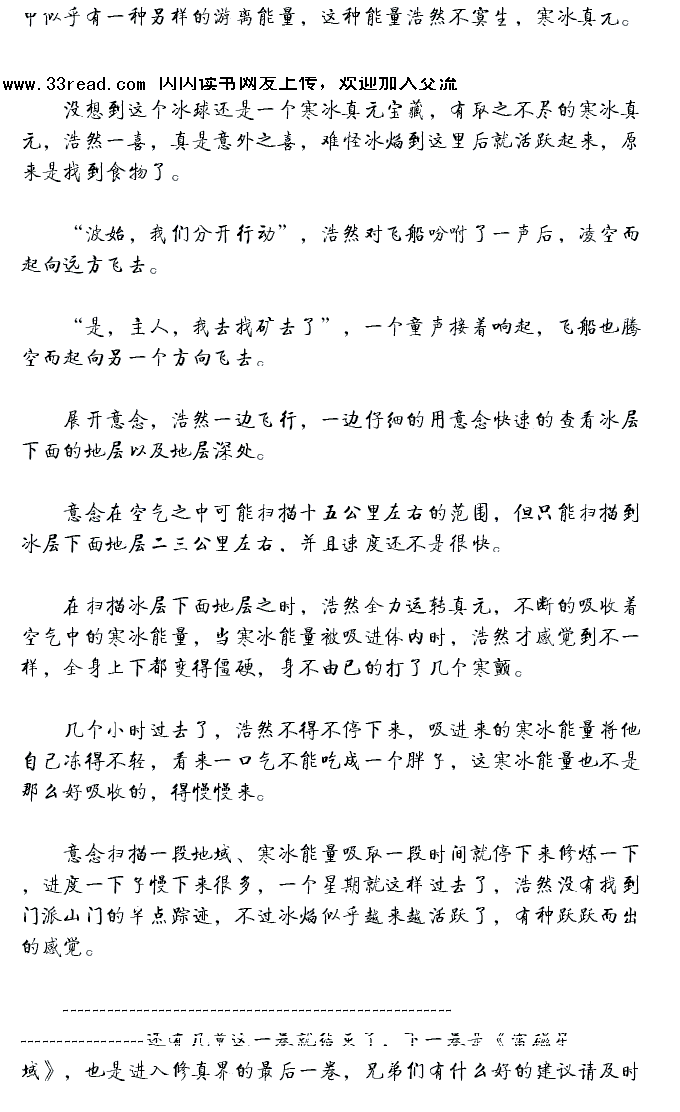 中似乎有一种另样的游离能量，这种能量浩然不寞生，寒冰真元。
www.33read.com 闪闪读书网友上传，欢迎加入交流
没想到这个冰球还是一个寒冰真元宝藏，有取之不尽的寒冰真
元，浩然一喜，真是意外之喜，难怪冰焰到这里后就活跃起来，原
来是找到食物了。
“波始，我们分开行动”，浩然对飞船吩咐了一声后，凌空而
起向远方飞去。
“是，主人，我去找矿去了”，一个童声接着响起，飞船也腾
空而起向另一个方向飞去。
展开意念，浩然一边飞行，一边仔细的用意念快速的查看冰层
下面的地层以及地层深处。
意念在空气之中可能扫描十五公里左右的范围，但只能扫描到
冰层下面地层二三公里左右，并且速度还不是很快。
在扫描冰层下面地层之时，浩然全力运转真元，不断的吸收着
空气中的寒冰能量，当寒冰能量被吸进体内时，浩然才感觉到不一
样，全身上下都变得僵硬，身不由已的打了几个寒颤。
几个小时过去了，浩然不得不停下来，吸进来的寒冰能量将他
自己冻得不轻，看来一口气不能吃成一个胖子，这寒冰能量也不是
那么好吸收的，得慢慢来。
意念扫描一段地域、寒冰能量吸取一段时间就停下来修炼一下
，进度一下子慢下来很多，一个星期就这样过去了，浩然没有找到
门派山门的半点踪迹，不过冰焰似乎越来越活跃了，有种跃跃而出
的感觉。
-----------------------------------------------------
-----------------还有几章这一卷就结束了，下一卷是《雷磁星
域》，也是进入修真界的最后一卷，兄弟们有什么好的建议请及时